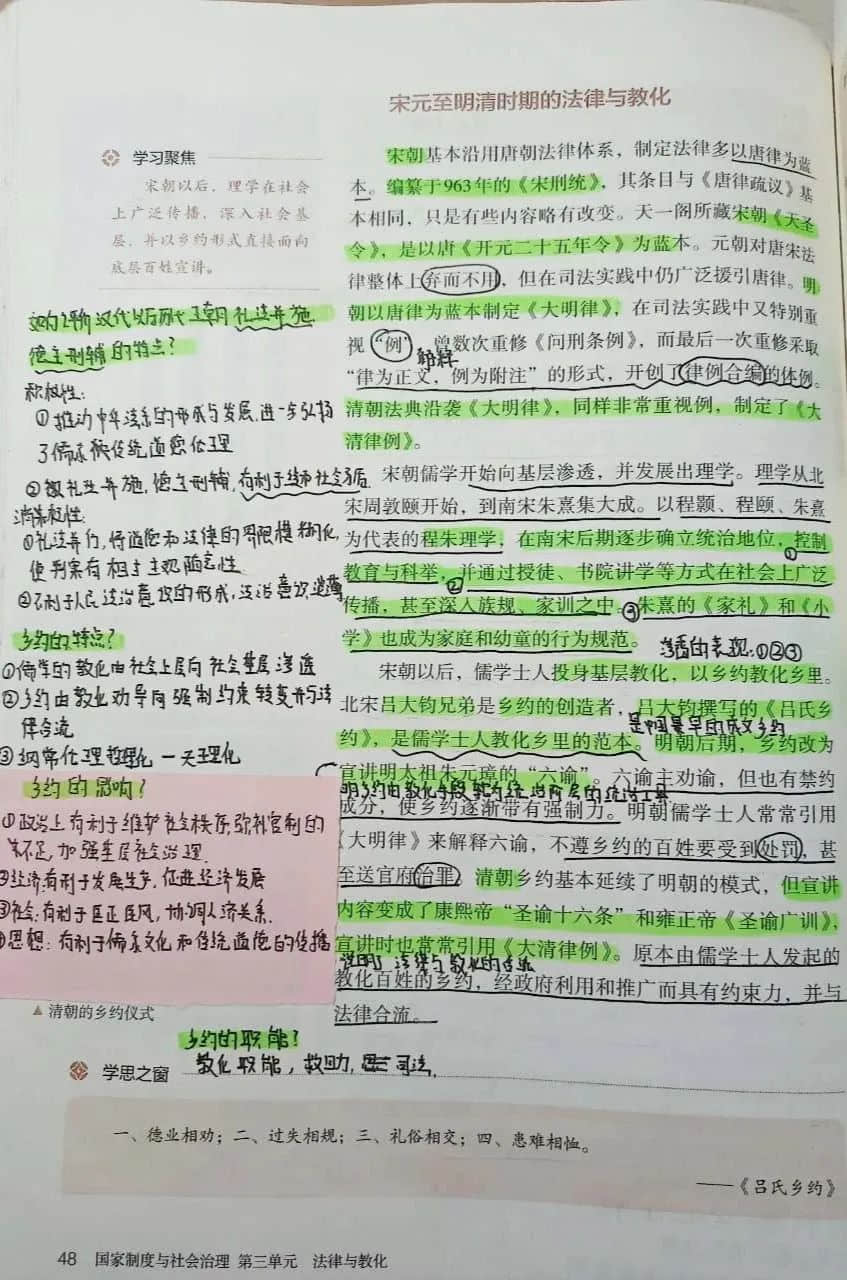 宋元至明清时期的法律与教化
学习聚焦
宋朝以后，理学在社会
上广泛传播，深入社会基
层，并以乡约形式直接面向
底层百姓宣讲。
宋朝基本沿用唐朝法律体系，制定法律多以唐律为蓝
本。编纂于963年的《宋刑统》，其条目与《唐律疏议》基
本相同，只是有些内容略有改变。天一阁所藏宋朝《天圣
令》，是以唐《开元二十五年令》为蓝本。元朝对唐宋法
律整体上弃而不用，但在司法实践中仍广泛援引唐律。明
朝以唐律为蓝本制定《大明律》，在司法实践中又特别重
视“例”，曾数次重修《问刑条例》，而最后一次重修采取
解释
“律为正文，例为附注”的形式，开创了律例合编的体例。
清朝法典沿袭《大明律》，同样非常重视例，制定了《大
清律例》。
宋朝儒学开始向基层渗透，并发展出理学。理学从北
宋周敦颐开始，到南宋朱熹集大成。以程颢、程颐、朱熹
为代表的程朱理学，在南宋后期逐步确立统治地位，①控制
教育与科举，②并通过授徒、书院讲学等方式在社会上广泛
传播，甚至深入族规、家训之中。③朱熹的《家礼》和《小
学》也成为家庭和幼童的行为规范。
渗透的表现：①②③
宋朝以后，儒学士人投身基层教化，以乡约教化乡里。
北宋吕大钧兄弟是乡约的创造者，吕大钧撰写的《吕氏乡
是中国最早的成文乡约
约》，是儒学士人教化乡里的范本。明朝后期，乡约改为
宣讲明太祖朱元璋的“六谕”。六谕主劝谕，但也有禁约
明乡约由教化手段转为统治阶层的统治工具
成分，使乡约逐渐带有强制力。明朝儒学士人常常引用
《大明律》来解释六谕，不遵乡约的百姓要受到处罚，甚
至送官府治罪。清朝乡约基本延续了明朝的模式，但宣讲
内容变成了康熙帝“圣谕十六条”和雍正帝《圣谕广训》，
宣讲时也常常引用《大清律例》。原本由儒学士人发起的
说明了法律与教化的
教化百姓的乡约，经政府利用和推广而具有约束力，并与
法律合流。
汉代以后历代王朝礼法并施
德主刑辅的特点？
积极性：
①推动中华法系的形成与发展，进一步弘扬
了儒家传统道德伦理
②礼法并施，德主刑辅，有利于社会
消极性：
①礼法并行，将道德和法律的界限模糊化，
使判案有相当主观随意性
②不利于人民法治意识的形成，法治意识淡薄
乡约的特点？
①儒学的教化由社会上层向社会基层渗透
②乡约由教化劝导向强制约束转变并与法
律合流
③纲常伦理哲理化—天理化
乡约的影响？
①政治上有利于维护社会秩序，弥补官制的
不足，加强基层社会治理.
②经济：有利于发展生产，促进经济发展
③社会：有利于匡正民风，协调人际关系.
④思想：有利于儒家文化和传统道德的传播
▲清朝的乡约仪式
乡约的职能？
教化职能，救助，司法.
学思之窗
一、德业相劝；二、过失相规；三、礼俗相交；四、患难相恤。
——《吕氏乡约》
48 国家制度与社会治理 第三单元 法律与教化